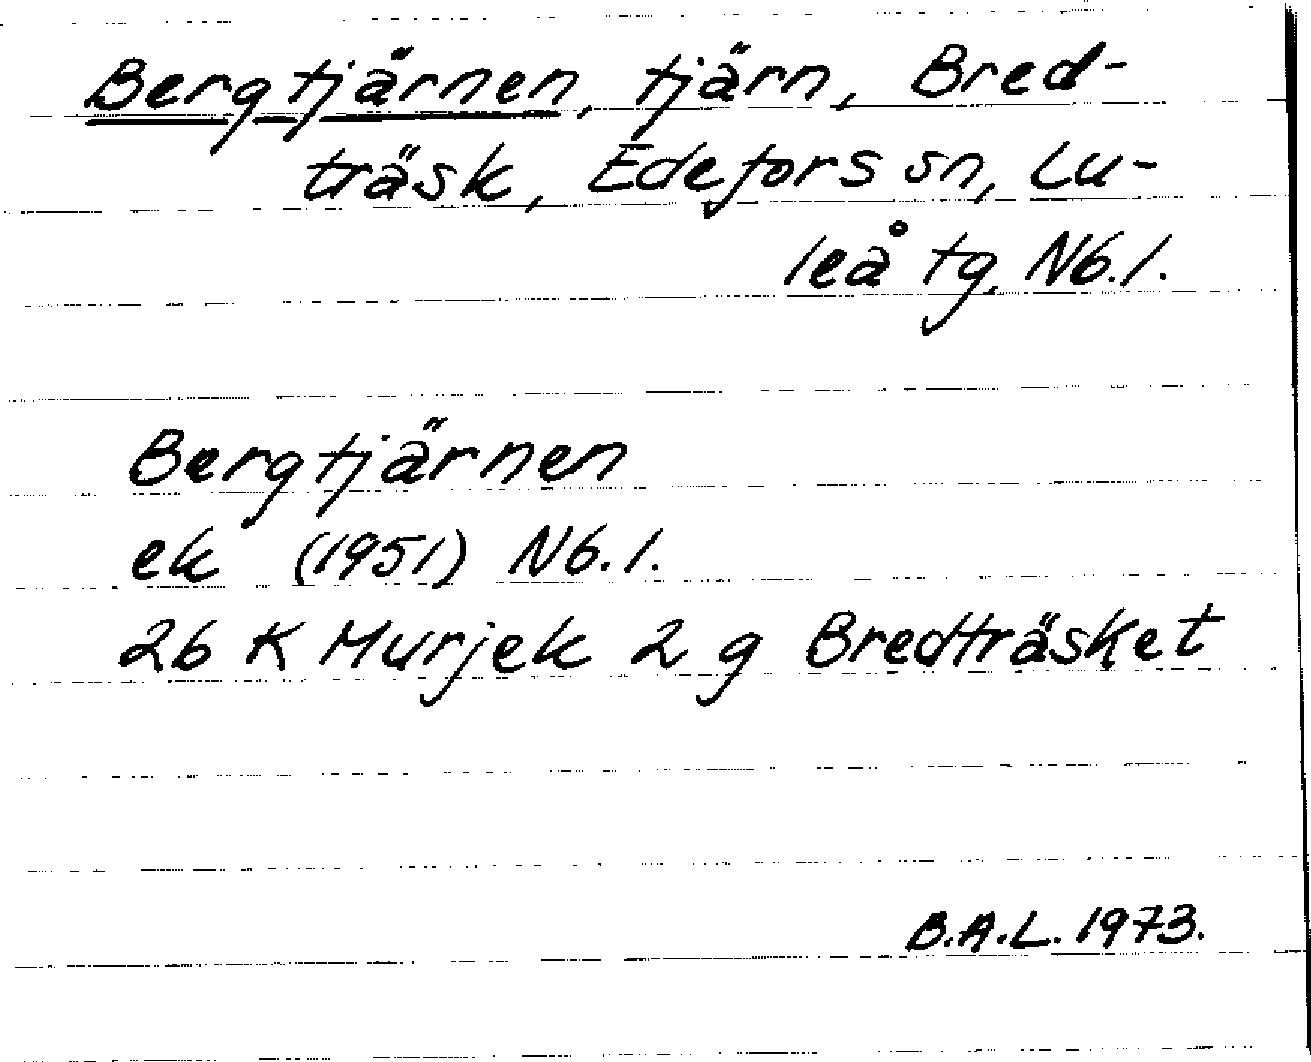 Bergtjärnen, tjärn, Bred-
träsk, Edefors sn, Lu-
leå tg, Nb.l.
Bergtjärnen
ek (1951) Nb.l.
26 K Murjek 2 g Bredträsket
B.A.L. 1973.